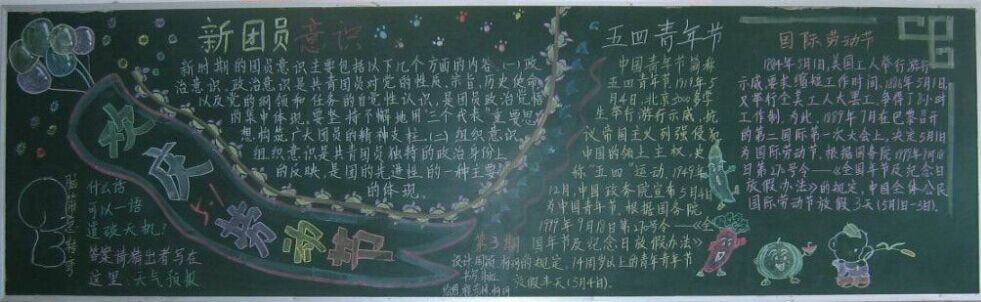 新团员意识
新时期的团员意识主要包括以下几个方面的内容(一)政
治意识,政治意识是共青团员对党的性质、宗旨,历史使命
以及党的纲领和任务的自觉性认识,是团员政治觉悟
的集中体现,要坚持不懈地用"三个代表"重要思
想,构筑广大团员的精神支柱.(二)组织意识
组织意识是共青团员独特的政治身份上
的反映,是团的先进性的一种主要
的体现.
欢庆五一劳动节
脑筋急转弯
什么话
可以一语
道破天机?
答案请猜出者写在
这里:天气预报
五四青年节
中国青年节简称
五四青年节,1919年5
月4日,北京3000多学
生举行游行示威,抗
议帝国主义列强侵犯
中国的领土主权,史
称"五四"运动,1949年
12月,中国政务院宣布5月4日
为中国青年节.根据国务院
1999年9月18日第270号令——《全
国年节及纪念日放假办法》
的规定,14周岁以上的青年青年节
放假半天(5月4日).
第3期
国际劳动节
1884年5月1日,美国工人举行游行
示威要求缩短工作时间,1886年5月1日
又举行全美工人大罢工,争得了8小时
工作制.为此,1889年7月在巴黎召开
的第二国际第一次大会上,决定5月1日
为国际劳动节.根据国务院1999年9月18
日第270号令——《全国年节及纪念日
放假办法》的规定,中国全体公民
国际劳动节放假3天(5月1日-3日).